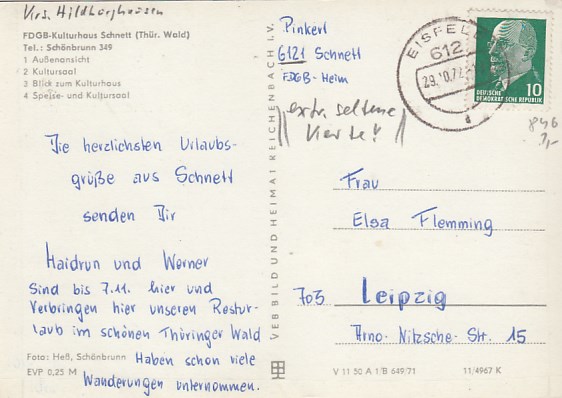 Krs. Hildburghausen
FDGB-Kulturhaus Schnett (Thür. Wald)
Tel.: Schönbrunn 349
1 Außenansicht
2 Kultursaal
3 Blick zum Kulturhaus
4 Speise- und Kultursaal
Die herzlichsten Urlaubs-
grüße aus Schnett
senden Dir
Haidrun und Werner
Sind bis 7.11. hier und
Verbringen hier unseren Restur-
laub im schönen Thüringer Wald
Haben schon viele
Wanderungen unternommen.
Foto: Heß, Schönbrunn
EVP 0,25 M
VEB BILD UND HEIMAT REICHENBACH I. V.
Pinkert
6121 Schnett
FDGB-Heim
extr. seltene
Karte!
EISFELD
612
DEUTSCHE
DEMOKRATISCHE REPUBLIK
10
846
3,-
Frau
Elsa Flemming
703 Leipzig
Arno-Nitzsche-Str. 15
V 11 50 A 1/B 649/71
11/4967 K